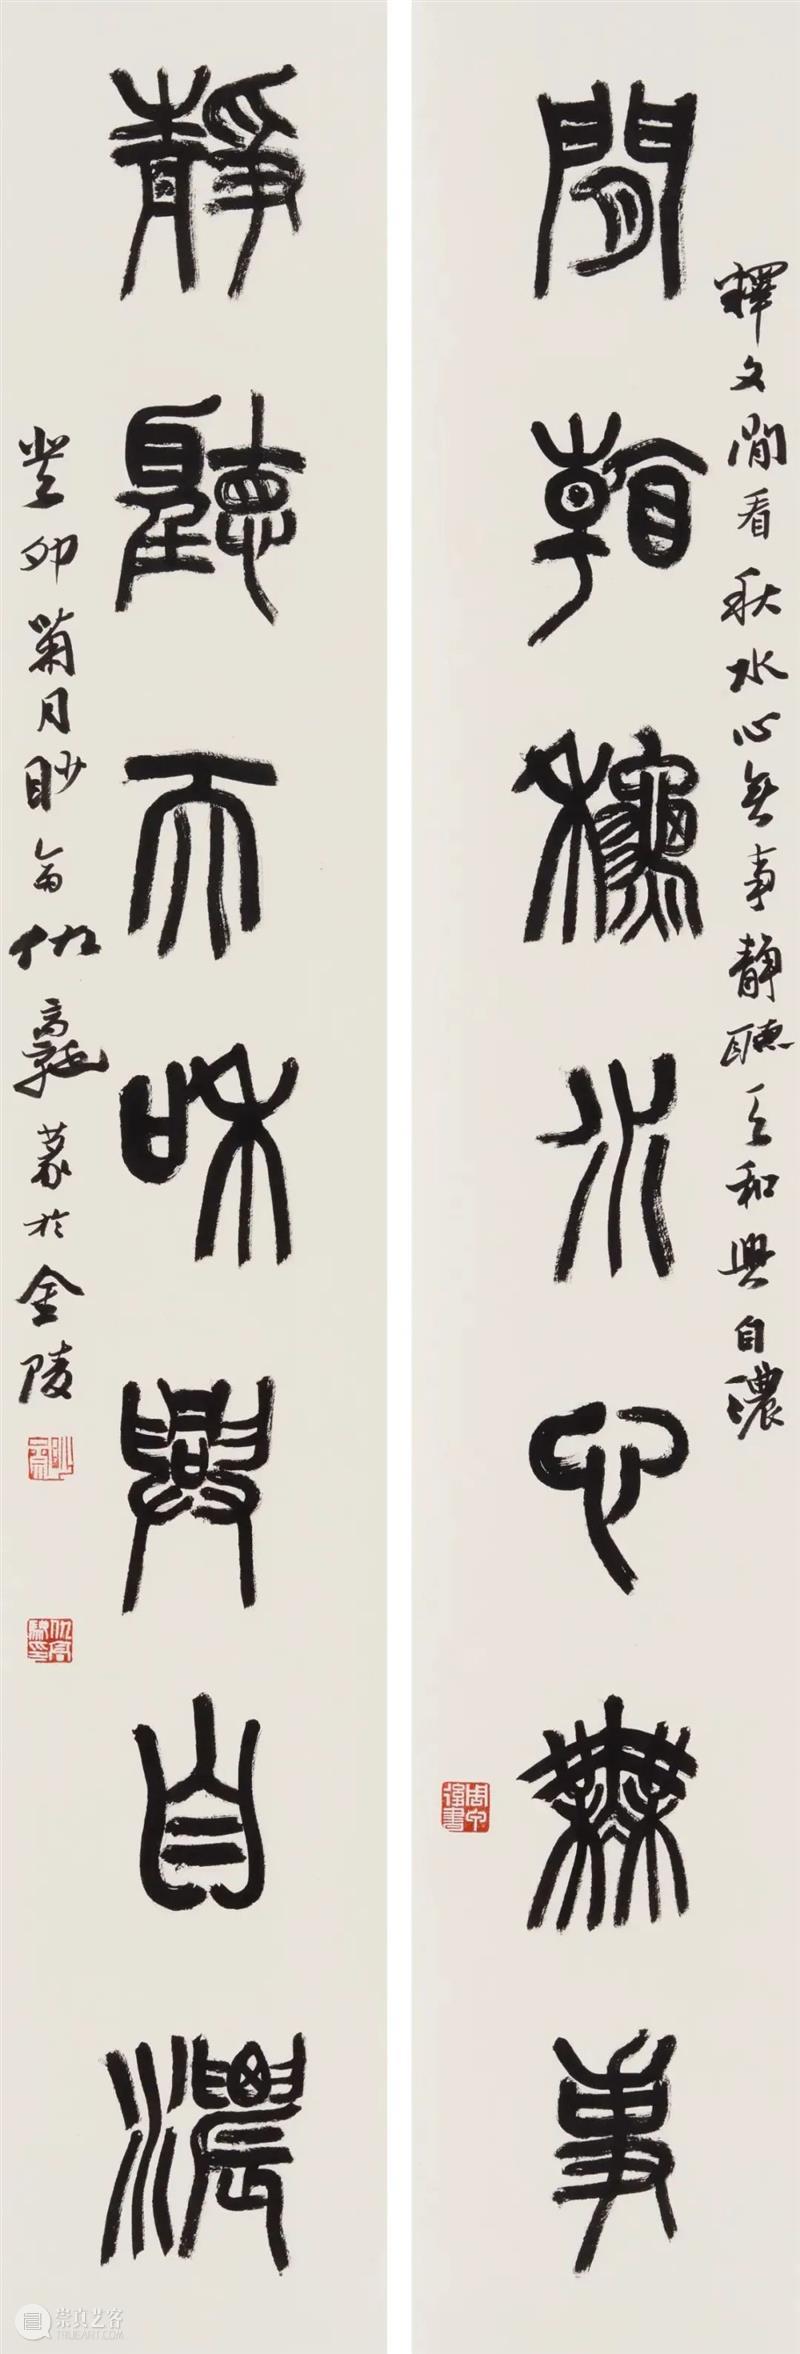 釋文閒看秋水心無事靜聽天和興自濃
閒看秋水心無事
周甲後書
靜聽天和興自濃
癸卯菊月眇仇高馳篆於金陵
仇高馳印
崇真艺客
TRUEART.COM